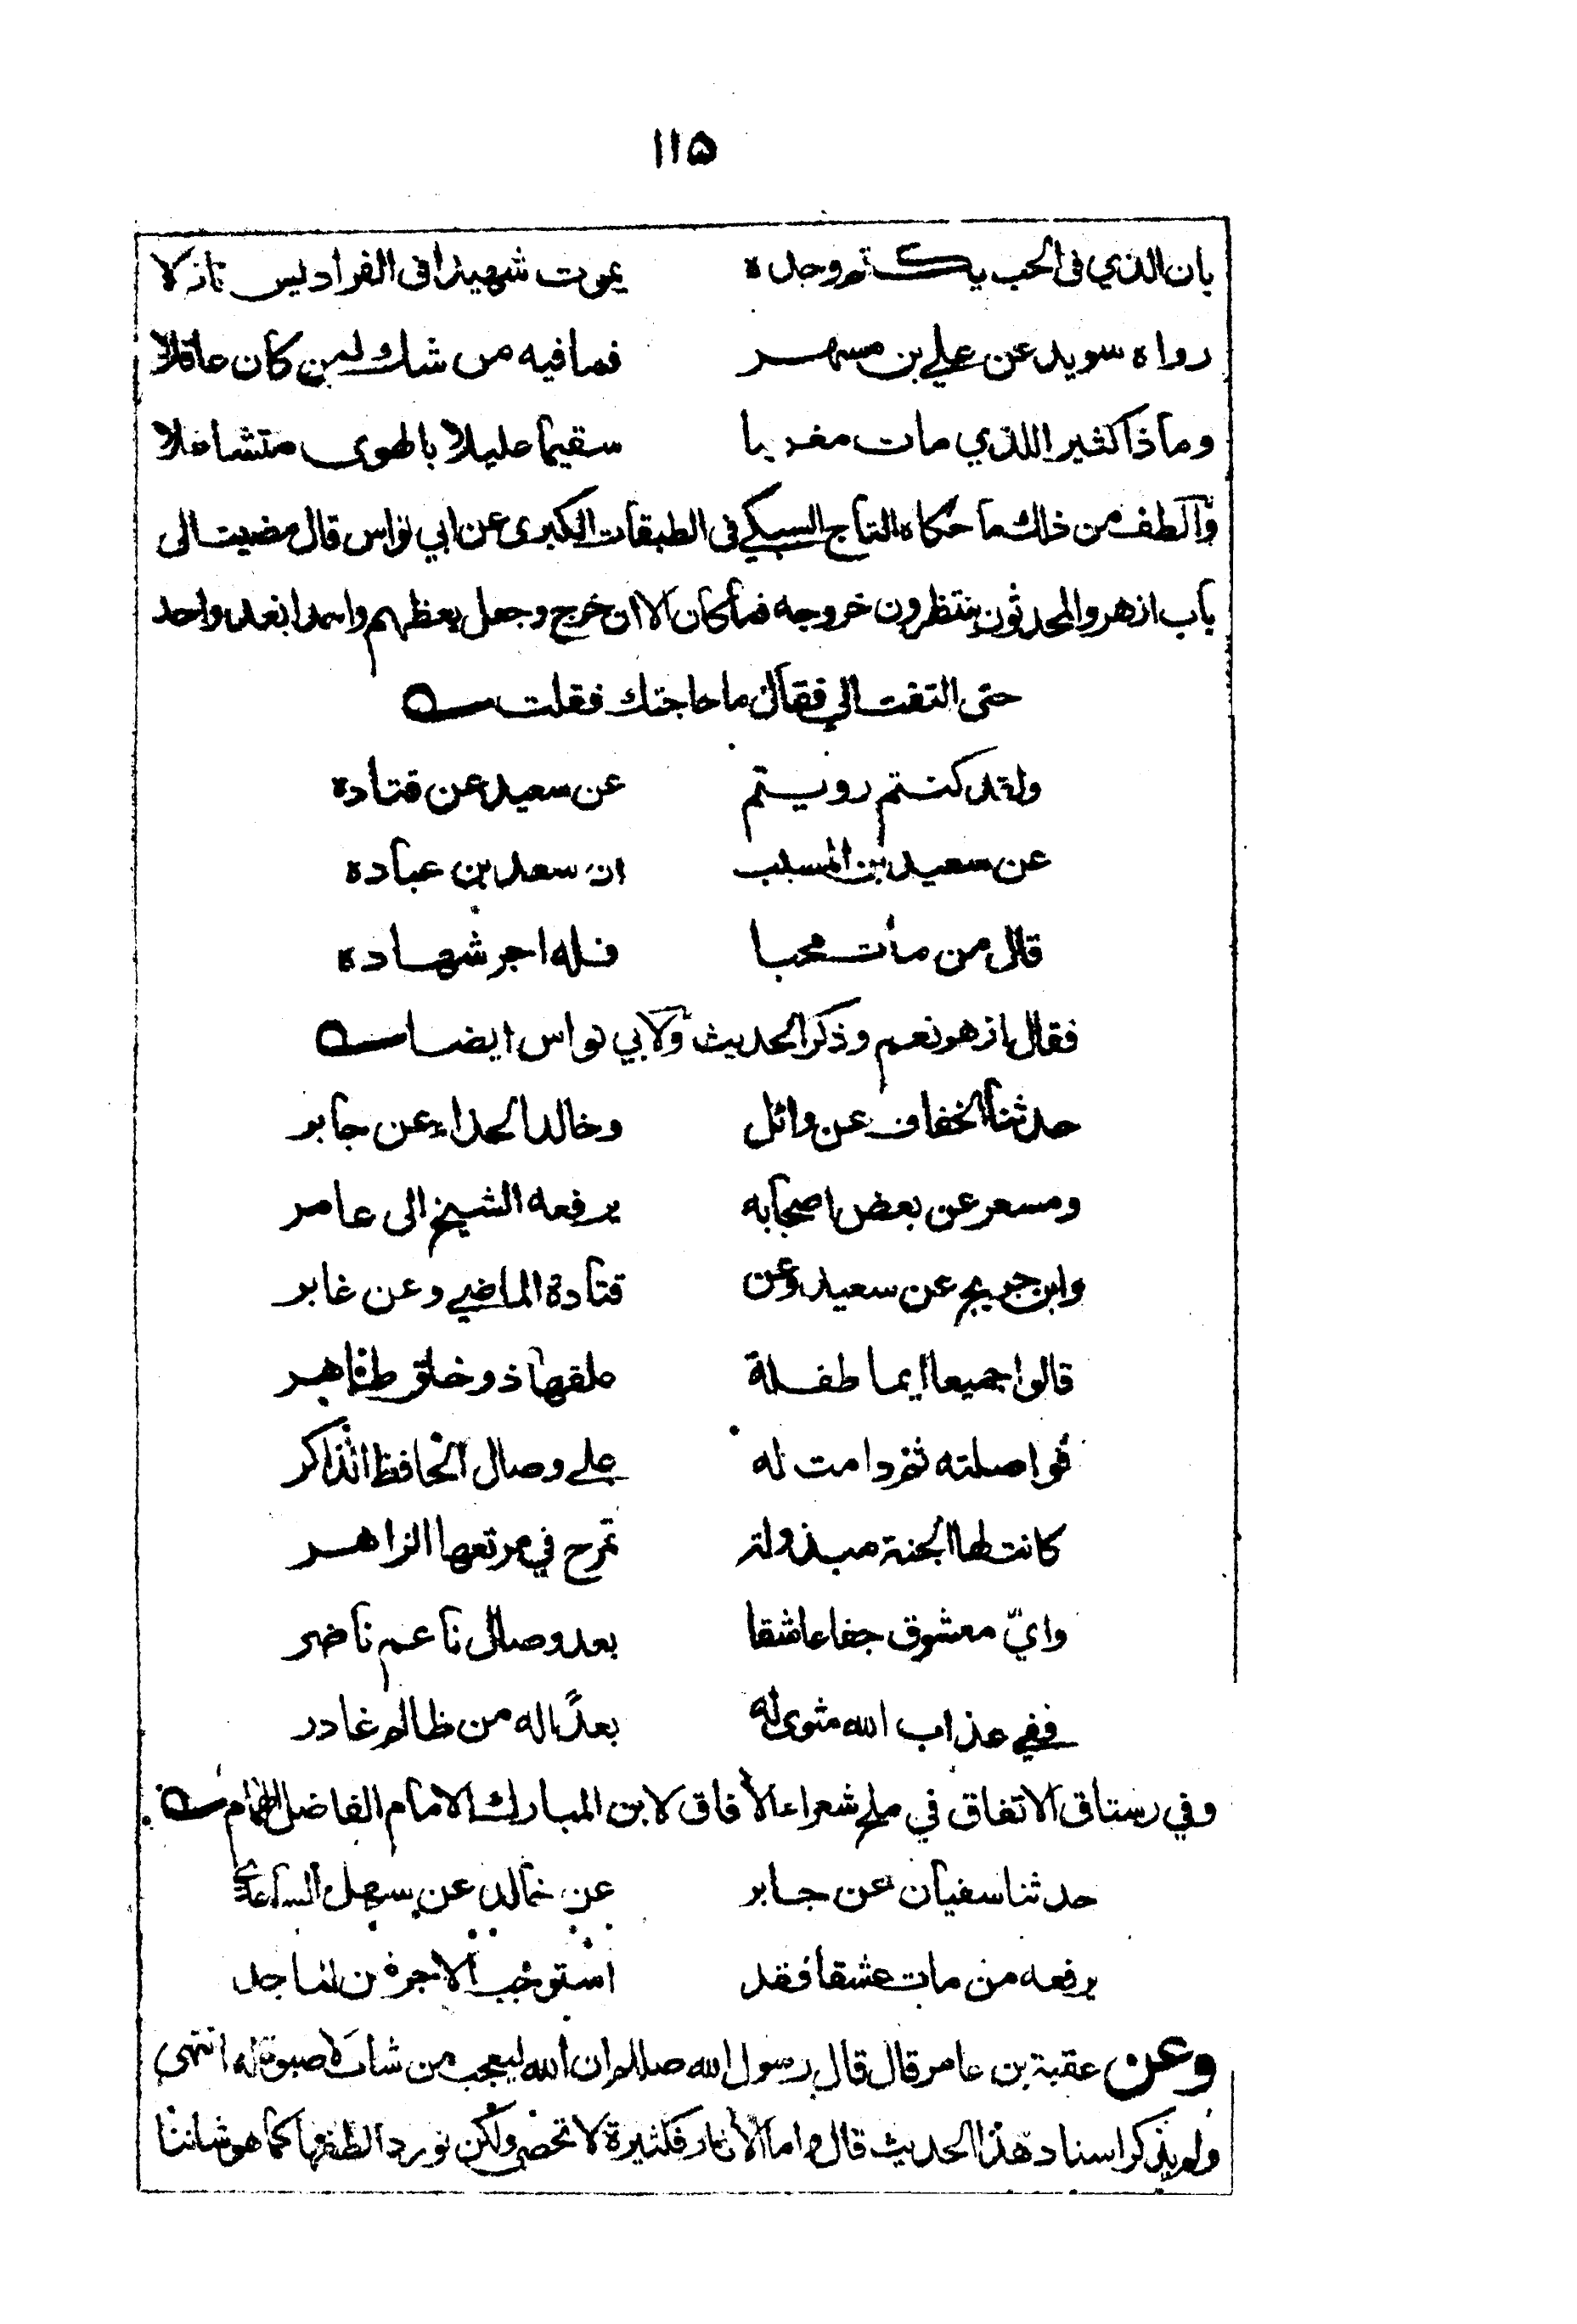 ١١٥
بان الذي في الحب يكتم وجده يموت شهيدا في الفراديس نازلا
رواه سويد عن علي بن مسهر فما فيه من شك لمن كان عاقلا
وماذا كثير اللذي مات مغرما سقيما عليلا بالهوى متشاغلا
والطف من ذلك ما حكاه التاج السبكي في الطبقات الكبرى عن ابي نواس قال مضيت الى
باب ازهر والمحدثون ينتظرون خروجه فما كان الا ان خرج وجعل يعظهم واحدا بعد واحد
حتى التفت الي فقال ما حاجتك فقلت
ولقد كنتم رويتم عن سعيد عن قتادة
عن سعيد بن المسيب ان سعد بن عباده
قال من مات محبا فله اجر شهاده
فقال ازهر نعم وذكر الحديث ولابي نواس ايضا
حدثنا الخفاف عن وائل وخالد الحذاء عن جابر
ومسعر عن بعض اصحابه يرفعه الشيخ الى عامر
وابن جريج عن سعيد وعن قتادة الماضي وعن غابر
قالوا جميعا ايما طفلة علقها ذو خلق طاهر
فواصلته ثم دامت له على وصال الحافظ الذاكر
كانت لها الجنة مبذولة تمرح في مرتعها الزاهر
واي معشوق جفا عاشقا بعد وصال ناعم ناضر
ففي عذاب الله مثوى له بعدًا له من ظالم غادر
وفي رستاق الاتفاق في ملح شعراء الآفاق لابن المبارك الامام الفاضل الهمام
حدثنا سفيان عن جابر عن خالد عن سهل الساعدي
يرفعه من مات عشقا فقد استوجب الاجر من الماجد
وعن عقبة بن عامر قال قال رسول الله صللم ان الله ليعجب من شاب لا صبوة له انتهى
ولم يذكر اسناد هذا الحديث قال واما الآثار فكثيرة لا تحصى ولكن نورد الطفها كما هو شاننا